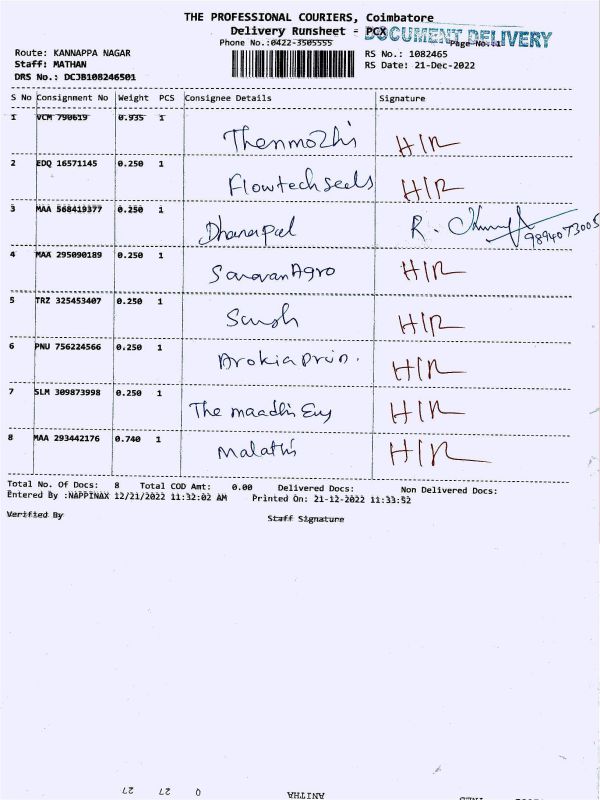 THE PROFESSIONAL COURIERS, Coimbatore
Delivery Runsheet - PCX
DOCUMENT DELIVERY
Phone No.:0422-3505555
Page No.:1
Route: KANNAPPA NAGAR
RS No.: 1082465
Staff: MATHAN
RS Date: 21-Dec-2022
DRS No.: DCJB108246501
S No Consignment No Weight PCS Consignee Details Signature
1 VCM 790619 0.935 1
Thenmozhi H/R
2 EDQ 16571145 0.250 1
Flowtech seels H/R
3 MAA 568419377 0.250 1
Dhanapal R. 9894073005
4 MAA 295090189 0.250 1
Saravan Agro H/R
5 TRZ 325453407 0.250 1
H/R
6 PNU 756224566 0.250 1
Arokia Prin. H/R
7 SLM 309873998 0.250 1
The maadhi H/R
8 MAA 293442176 0.740 1
Malathi H/R
Total No. Of Docs: 8 Total COD Amt: 0.00 Delivered Docs: Non Delivered Docs:
Entered By :NAPPINAX 12/21/2022 11:32:02 AM Printed On: 21-12-2022 11:33:52
Verified By Staff Signature
27 27 0 ANITHA